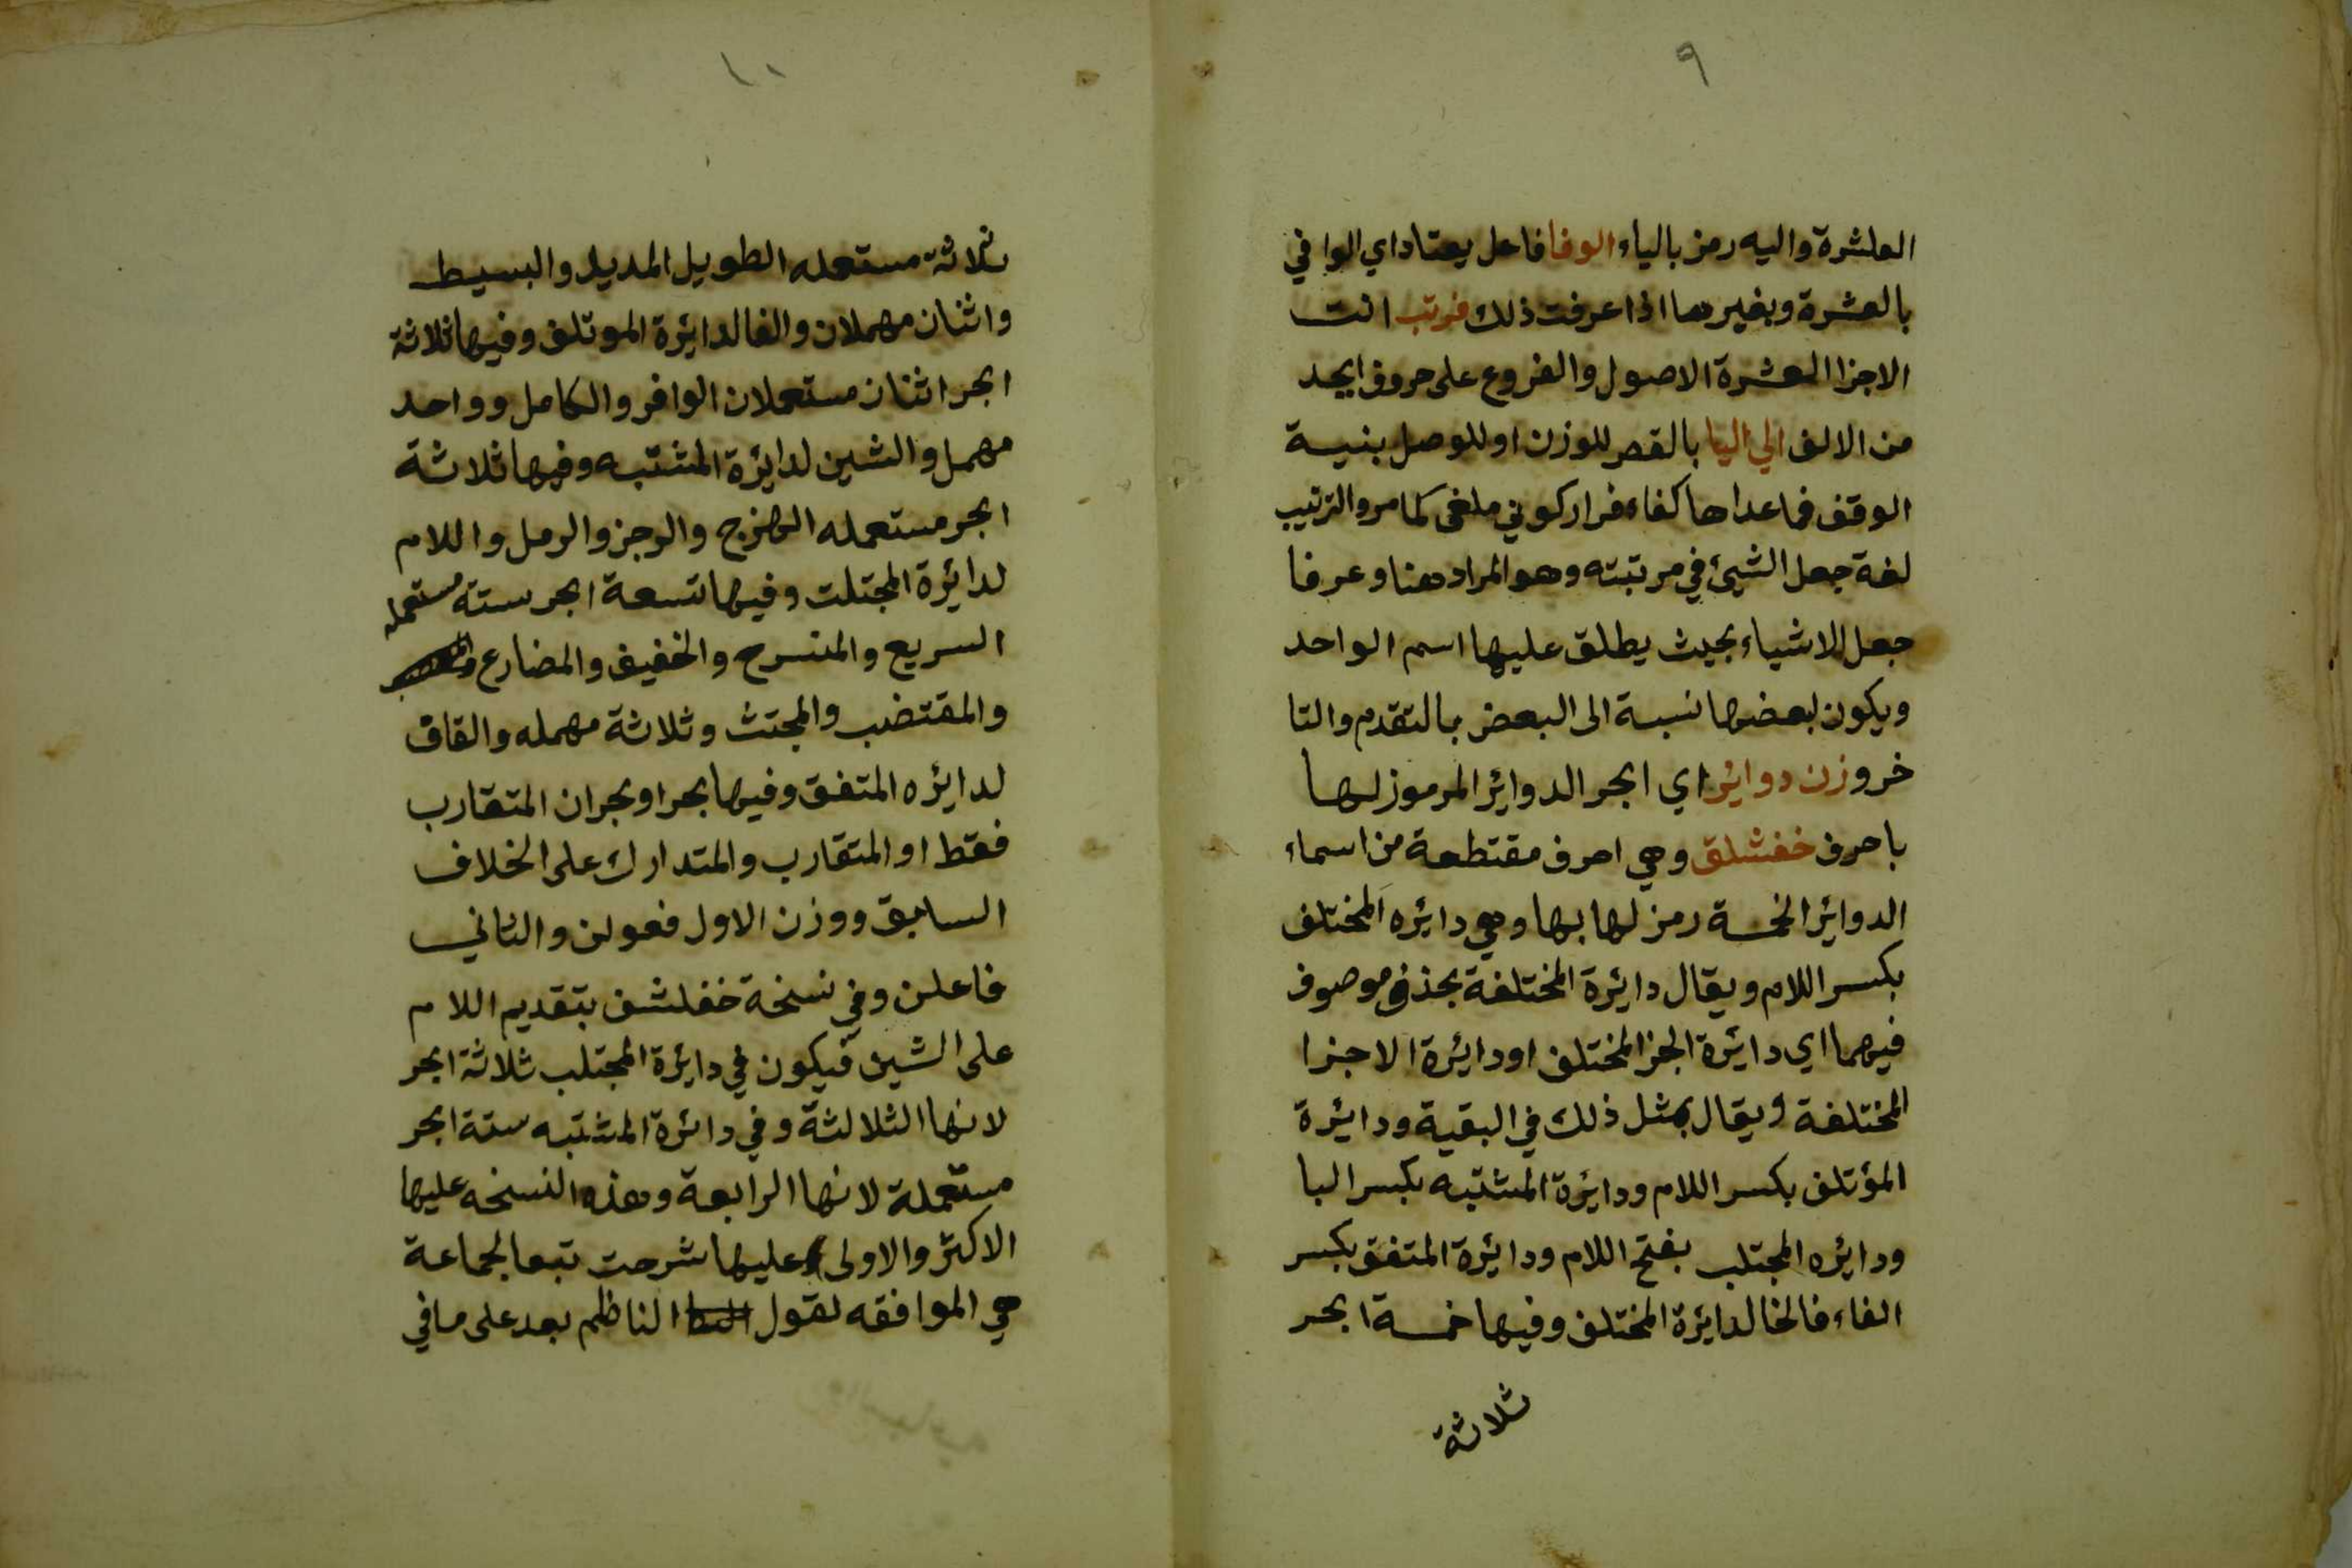 ٩
العاشرة واليه رمز بالياء الوفا فاعل يعتاد اي الوافي
بالعشرة وبغيرها اذا عرفت ذلك فرتب انت
الاجزا العشرة الاصول والفروع على حروف ابجد
من الالف الي اليا بالقصر للوزن او للوصل بنية
الوقف فما عداها كفاء فرار كوني ملغى كما مر والترتيب
لغة جعل الشيئ في مرتبته وهو المراد هنا وعرفا
جعل الاشياء بحيث يطلق عليها اسم الواحد
ويكون لبعضها نسبة الى البعض بالتقدم والتا
خر وزن دوائر اي ابحر الدوائر المرموز لها
باحرف خفشلق وهي احرف مقتطعة من اسماء
الدوائر الخمسة رمز لها بها وهي دائره المختلف
بكسر اللام ويقال دائرة المختلفة بحذف موصوف
فيهما اي دائرة الجز المختلف او دائرة الاجزا
المختلفة ويقال بمثل ذلك في البقية ودائرة
المؤتلف بكسر اللام ودائرة المشتبه بكسر البا
ودائره المجتلب بفتح اللام ودائرة المتفق بكسر
الفاء فالخا لدائرة المختلف وفيها خمسة ابحر
ثلاثة
١٠
ثلاثة مستعمله الطويل المديد والبسيط
واثنان مهملان والفا لدائرة الموتلف وفيها ثلاثة
ابحر اثنان مستعملان الوافر والكامل وواحد
مهمل والشين لدائرة المشتبه وفيها ثلاثة
ابحر مستعمله الهزج والرجز والرمل واللام
لدائرة المجتلت وفيها تسعة ابحر ستة مستعمله
السريع والمنسرح والخفيف والمضارع
والمقتضب والمجتث وثلاثة مهمله والقاف
لدائره المتفق وفيها بحر او بحران المتقارب
فقط او المتقارب والمتدارك على الخلاف
السابق ووزن الاول فعولن والثاني
فاعلن وفي نسخة خفلشق بتقديم اللام
على الشين فيكون في دائرة المجتلب ثلاثة ابحر
لانها الثلالثة وفي دائرة المشتبه ستة ابحر
مستعملة لانها الرابعة وهذه النسخه عليها
الاكثر والاولى عليها شرحت تبعا لجماعة
هي الموافقه لقول الناظم بعد على ما في